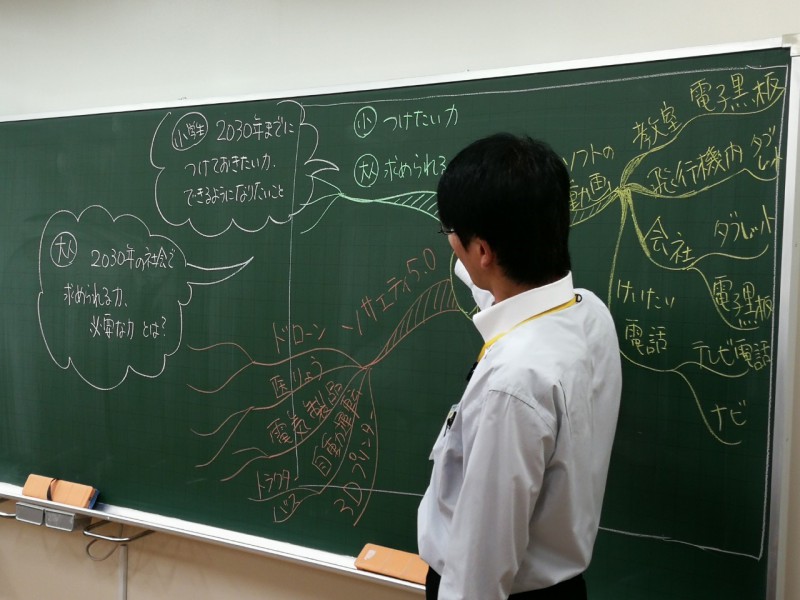 小学生 2030年までに
つけておきたい力、
できるようになりたいこと
大人 2030年の社会で
求められる力、
必要な力 とは?
小 つけたい力
大人 求められる
ソサエティ5.0
ドローン
医りょう
電気製品
自動運転
トラクター
バス
3Dプリンター
ソフトの
動画
教室 電子黒板
飛行機内 タブレット
会社 タブレット
電子黒板
けいたい
電話 テレビ電話
ナビ